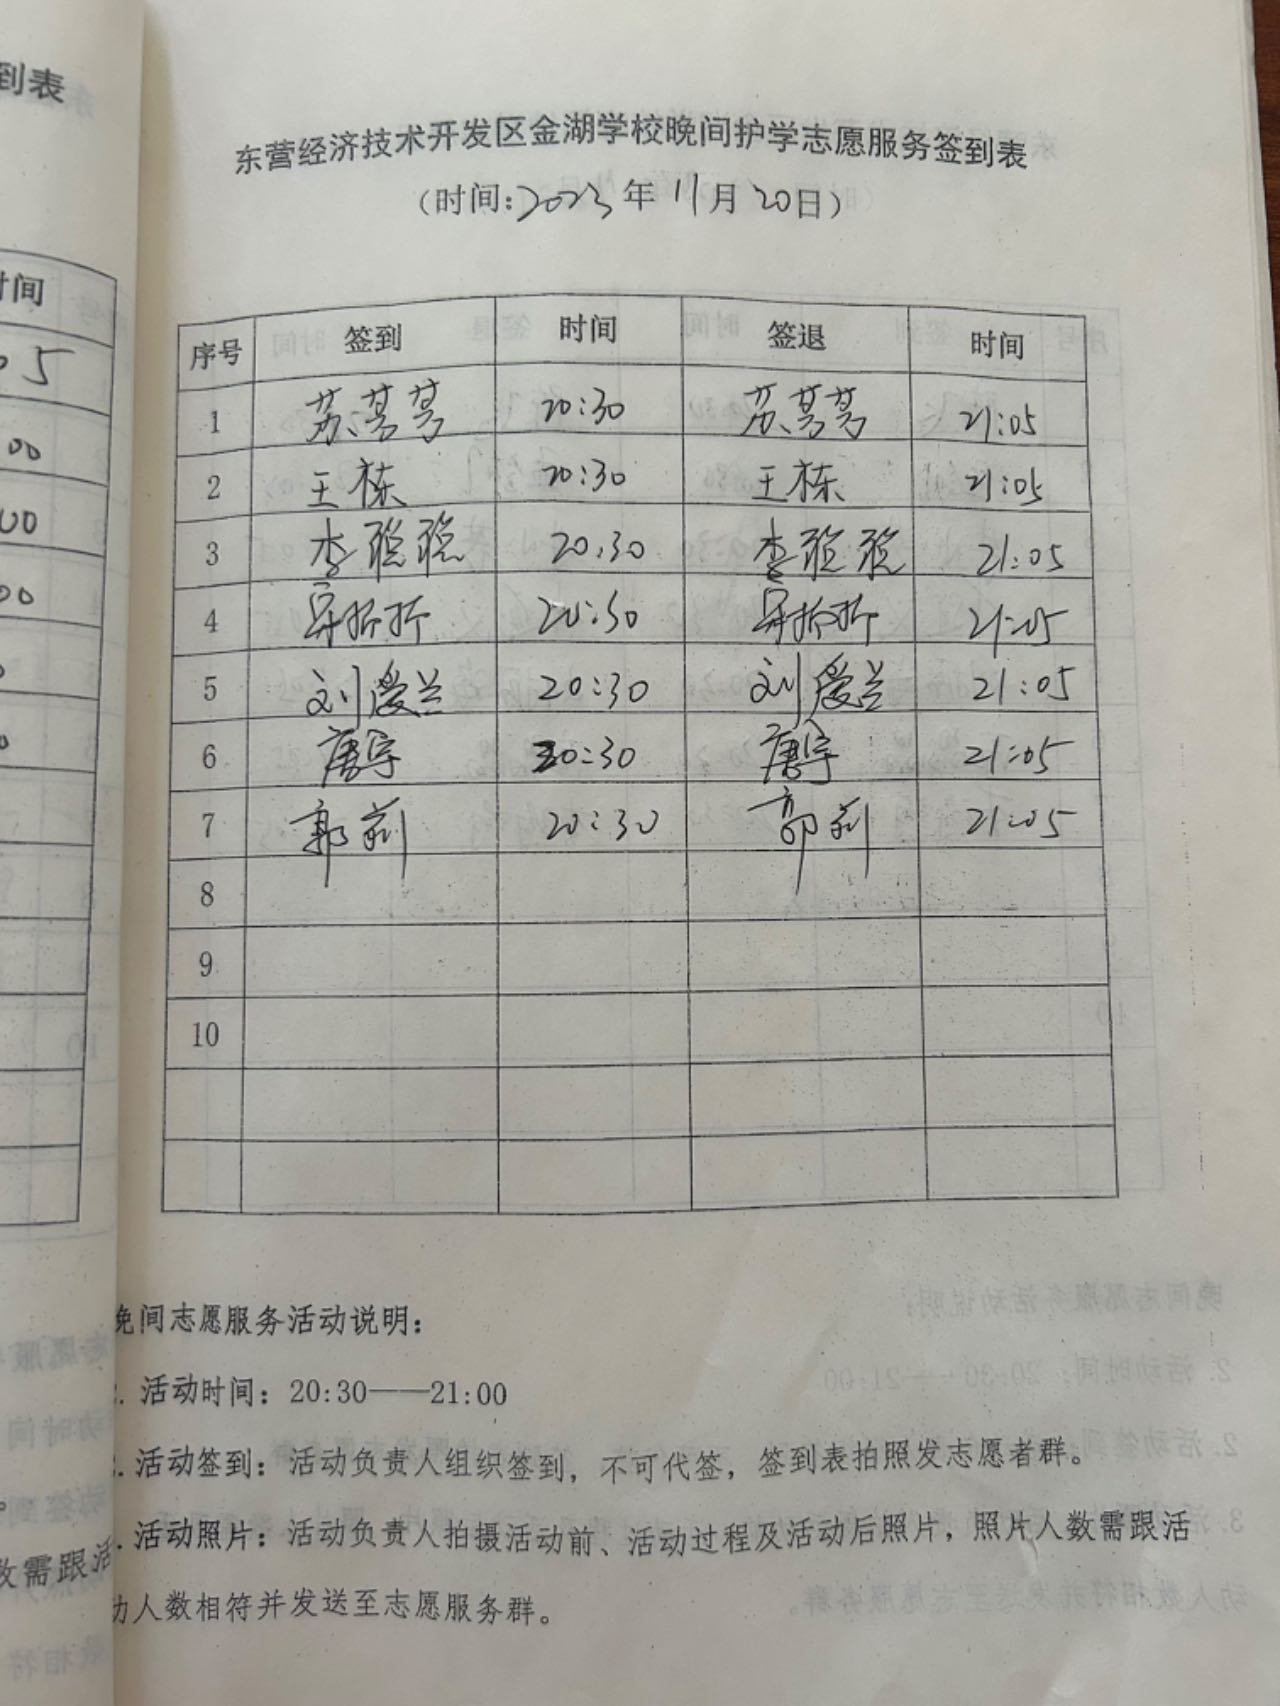 到表
东营经济技术开发区金湖学校晚间护学志愿服务签到表
（时间：2023年11月20日）
时间
05
00
00
00
序号 签到 时间 签退 时间
1 苏 20:30 苏 21:05
2 王栋 20:30 王栋 21:05
3 李聪聪 20:30 李聪聪 21:05
4 20:30 21:05
5 刘爱兰 20:30 刘爱兰 21:05
6 唐宇 20:30 唐宇 21:05
7 郭莉 20:30 郭莉 21:05
8
9
10
晚间志愿服务活动说明：
. 活动时间：20:30——21:00
. 活动签到：活动负责人组织签到，不可代签，签到表拍照发志愿者群。
. 活动照片：活动负责人拍摄活动前、活动过程及活动后照片，照片人数需跟活
动人数相符并发送至志愿服务群。
数需跟活